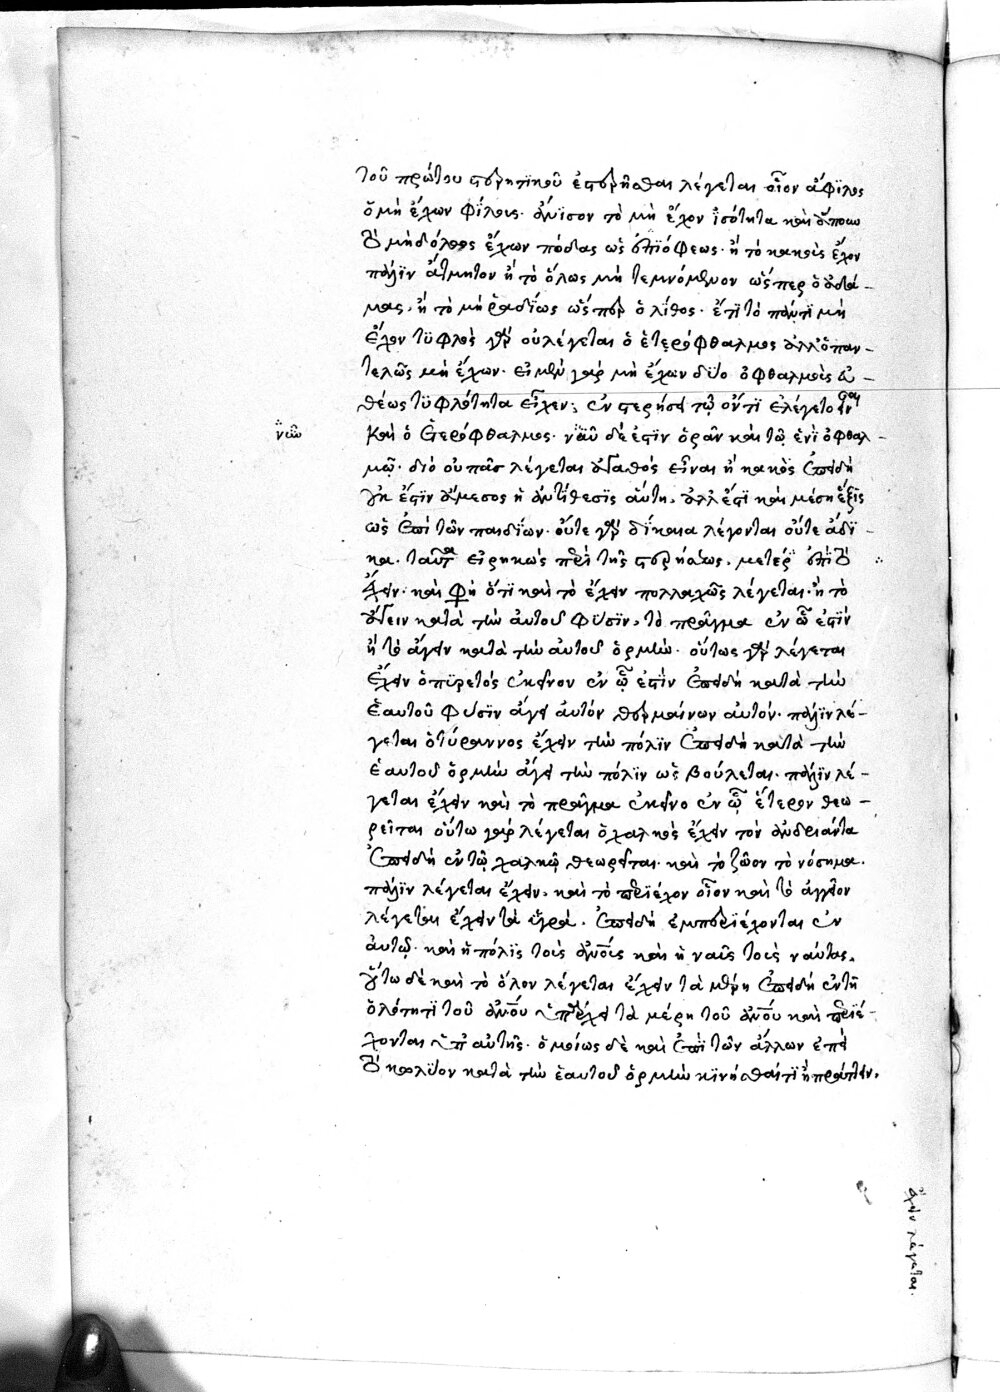 τοῦ πρώτου στερητικοῦ ἐστερῆσθαι λέγεται οἷον ἄφιλος
ὁ μὴ ἔχων φίλους· ἄνισον τὸ μὴ ἔχον ἰσότητα καὶ ἄπουν
τὸ μηδόλως ἔχων πόδας ὡς ἐπὶ ὄφεως· ἢ τὸ κακῶς ἔχον
πάλιν ἄτμητον ἢ τὸ ὅλως μὴ τεμνόμενον ὥσπερ ὁ ἀδά-
μας, ἢ τὸ μὴ ῥαδίως ὥσπερ ὁ λίθος· ἔτι τὸ πάντι μὴ
ἔχον τυφλὸς γὰρ οὐ λέγεται ὁ ἑτερόφθαλμος ἀλλ' ὁ παν-
τελῶς μὴ ἔχων· εἰ μὲν γὰρ μὴ ἔχων δύο ὀφθαλμοὺς εὐ-
θέως τυφλότητα εἶχεν; ἐν στερήσει τῷ ὄντι ἐλέγετο ἂν
καὶ ὁ ἑτερόφθαλμος· νῦν δέ ἐστιν ὁρᾶν καὶ τῷ ἑνὶ ὀφθαλ-
μῷ· διὸ οὐ πᾶς λέγεται ἀγαθὸς εἶναι ἢ κακὸς ἐπειδὴ
ἔστιν ἄμεσος ἡ ἀντίθεσις αὕτη, ἀλλ' ἔστι καὶ μέση ἕξις
ὡς ἐπὶ τῶν παιδίων· οὔτε γὰρ δίκαια λέγονται οὔτε ἄδι-
κα. ταῦτα εἰρηκὼς περὶ τῆς στερήσεως, ἐπὶ τὸ
ἔχειν· καὶ φησὶ ὅτι καὶ τὸ ἔχειν πολλαχῶς λέγεται· ἢ τὸ
ἄγειν κατὰ τὴν αὐτοῦ φύσιν, τὸ πρᾶγμα ἐν ᾧ ἐστίν
ἢ τὸ ἄγειν κατὰ τὴν αὐτοῦ ὁρμήν· οὕτως γὰρ λέγεται
ἔχειν ὁ πυρετὸς ἐκεῖνον ἐν ᾧ ἐστὶν ἐπειδὴ κατὰ τὴν
ἑαυτοῦ φύσιν ἄγει αὐτόν θερμαίνων αὐτόν· πάλιν λέ-
γεται ὁ τύραννος ἔχειν τὴν πόλιν ἐπειδὴ κατὰ τὴν
ἑαυτοῦ ὁρμὴν ἄγει τὴν πόλιν ὡς βούλεται· πάλιν λέ-
γεται ἔχειν καὶ τὸ πρᾶγμα ἐκεῖνο ἐν ᾧ ἕτερον θεω-
ρεῖται οὕτω γὰρ λέγεται ὁ χαλκὸς ἔχειν τὸν ἀνδριάντα
ἐπειδὴ ἐν τῷ χαλκῷ θεωρεῖται· καὶ τὸ ζῷον τὸ νόσημα.
πάλιν λέγεται ἔχειν, καὶ τὸ περιέχον οἷον καὶ τὸ ἀγγεῖον
λέγεται ἔχειν τὰ ὑγρά. ἐπειδὴ ἐμπεριέχονται ἐν
αὐτῷ· καὶ ἡ πόλις τοὺς ἀνους καὶ ἡ ναῦς τοὺς ναύτας.
οὕτω δὲ καὶ τὸ ὅλον λέγεται ἔχειν τὰ μέρη ἐπειδὴ ἐν τῇ
ὁλότητι τοῦ ἀνου ὑπάρχει τὰ μέρη τοῦ ἀνου καὶ περιέ-
χονται ὑπ' αὐτῆς· ὁμοίως δὲ καὶ ἐπὶ τῶν ἄλλων ἐπεὶ
τὸ κωλῦον κατὰ τὴν ἑαυτοῦ ὁρμὴν κινεῖσθαί τι ἢ πράττειν.
ἔχειν λέγεται.